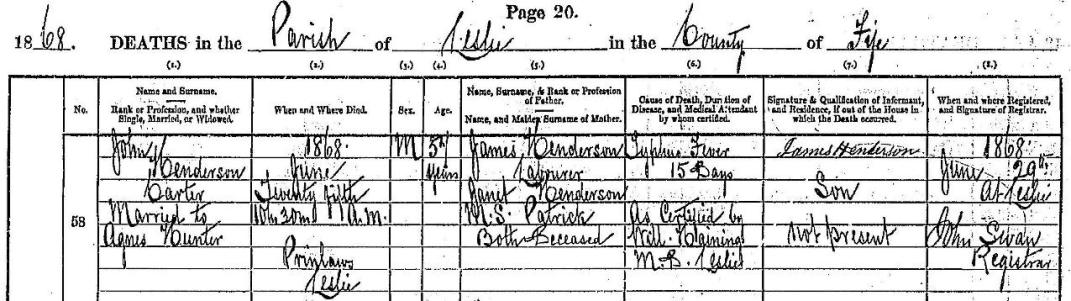 Page 20.
1868. DEATHS in the Parish of Leslie in the County of Fife
(1.) (2.) (3.) (4.) (5.) (6.) (7.) (8.)
No.
Name and Surname.
Rank or Profession, and whether Single, Married, or Widowed.
When and Where Died.
Sex.
Age.
Name, Surname, & Rank or Profession of Father.
Name, and Maiden Surname of Mother.
Cause of Death, Duration of Disease, and Medical Attendant by whom certified.
Signature & Qualification of Informant, and Residence, if out of the House in which the Death occurred.
When and where Registered, and Signature of Registrar.
58
John
Henderson
Carter
Married to
Agnes Hunter
1868.
June
Twenty fifth
10h 30m A.M.
Prinlaws
Leslie
M
years
James Henderson
Labourer
Janet Henderson
M.S. Patrick
Both Deceased
Typhus Fever
15 Days
As Certified by
Will.
M.B. Leslie
James Henderson
Son
Not present
1868.
June 29th
At Leslie
John Swan
Registrar